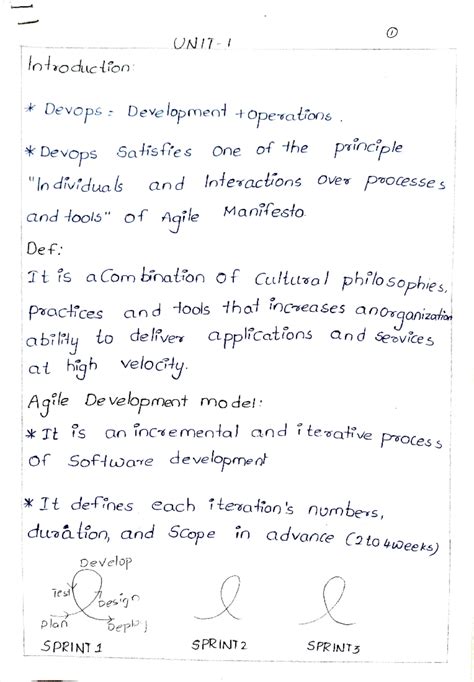 ①
UNIT-1
Introduction:
* Devops = Development + Operations.
* Devops Satisfies One of the principle
"Individuals and Interactions Over processes
and tools" of Agile Manifesto.
Def:
It is a Combination of Cultural philosophies,
practices and tools that increases an organization
ability to deliver applications and services
at high velocity.
Agile Development model:
* It is an incremental and iterative process
of Software development
* It defines each iteration's numbers,
duration, and Scope in advance (2 to 4 weeks)
Develop
Test
Design
plan
Deploy
SPRINT 1
SPRINT 2
SPRINT 3